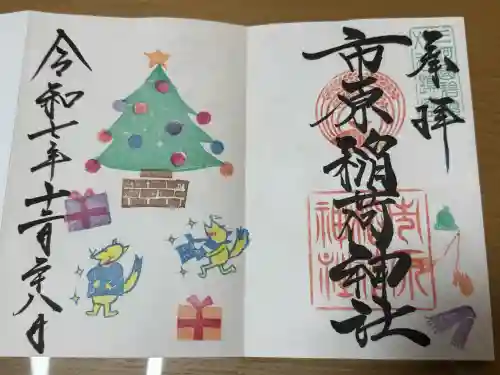 奉拝
市原稲荷神社
令和七年十二月二十八日